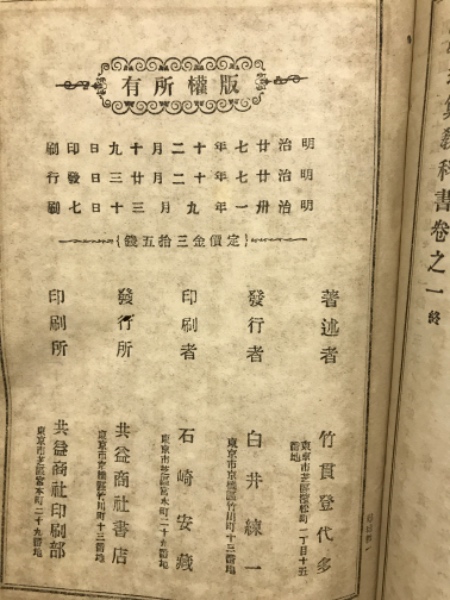 教科書卷之一終
版權所有
明治廿七年十二月十九日印刷
明治廿七年十二月廿三日發行
明治卅一年九月三十日七刷
{定價金三拾五錢}
著述者 竹貫登代多
東京市芝區濱松町一丁目十五番地
發行者 白井練一
東京市京橋區竹川町十三番地
印刷者 石崎安藏
東京市芝區宮本町二十九番地
發行所 共益商社書店
東京市京橋區竹川町十三番地
印刷所 共益商社印刷部
東京市芝區宮本町二十九番地